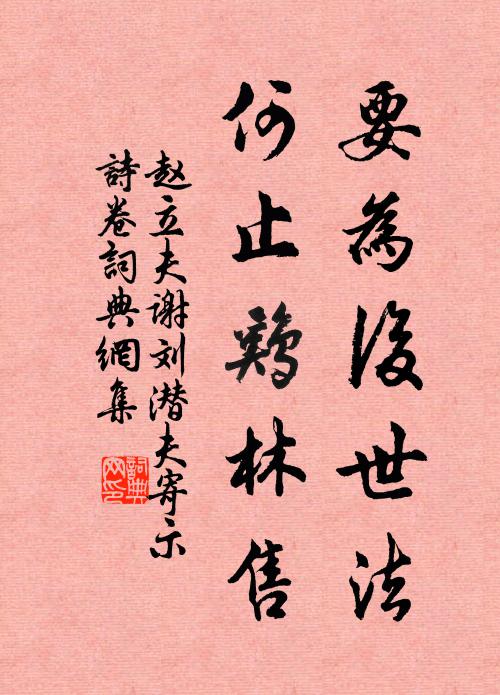 要為後世法
何止鷄林售
赵立夫谢刘潜夫寄示
詩卷詞典網集
詞典网印